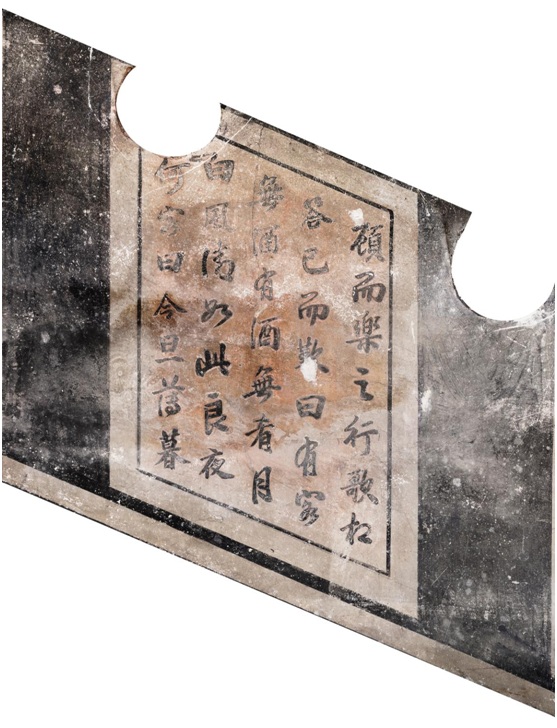 顧而樂之行歌相
答已而歎曰有客
無酒有酒無肴月
白風清如此良夜
何客曰今旦薄暮